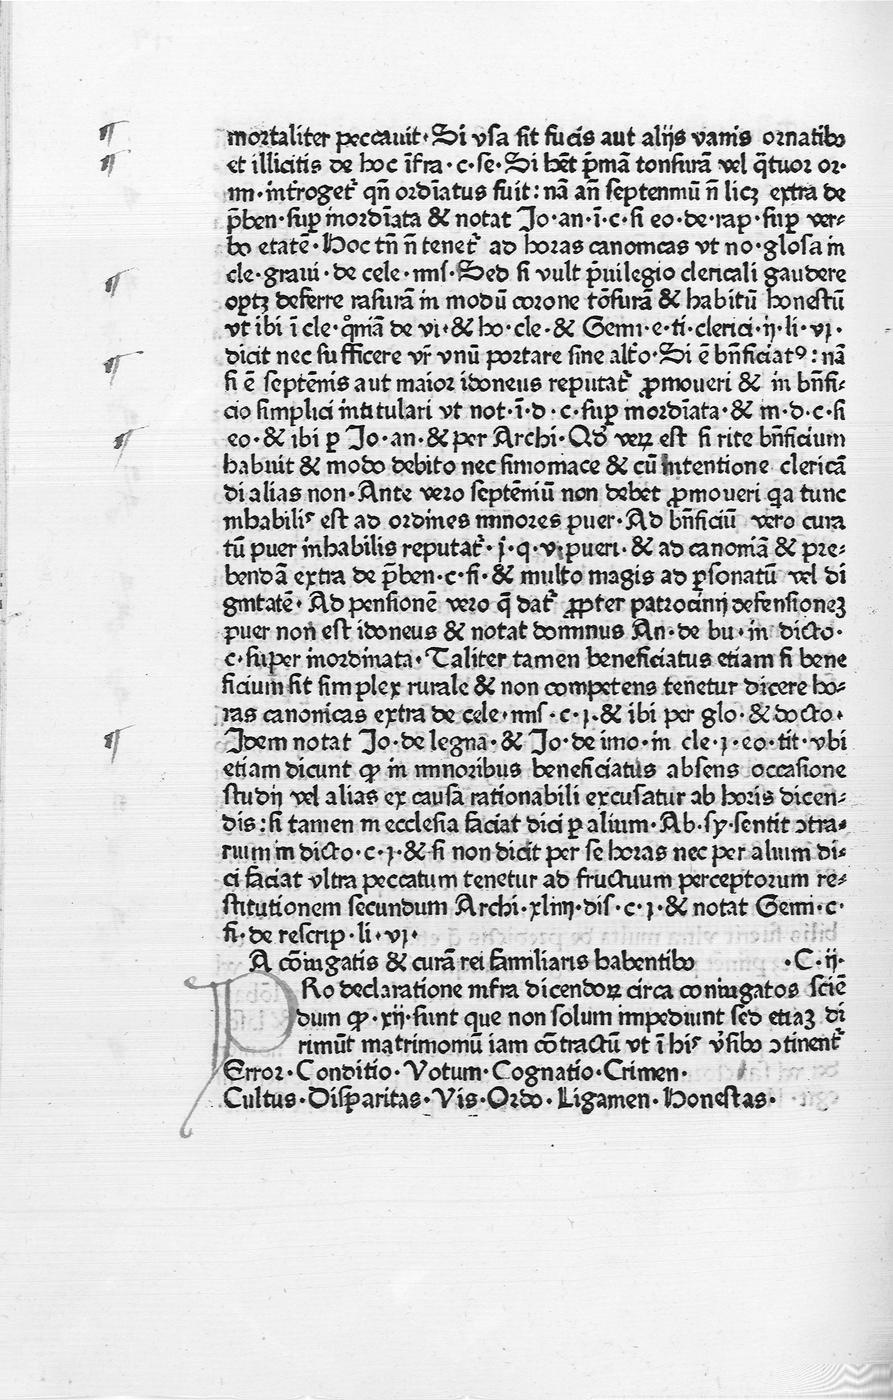 mortaliter peccauit·Si vsa sit fucis aut alijs vanis ornatibꝰ
et illicitis de hoc īfra·c·se·Si hēt p̄mā tonsurā vel q̄tuor or·
nn·introget᷑ qn̄ ordīatus fuit: nā an̄ septennuū n̄ licꝫ extra de
p̄ben·sup inordīata & notat Jo·an·ī·c·si eo·de·rap·sup ver⸗
bo etatē·Hoc tn̄ n̄ tenet᷑ ad horas canonicas vt no·glosa in
cle·graui·de cele·mis·Sed si vult p̄uilegio clericali gaudere
optꝫ deferre rasurā in modū corone tōsurā & habitū honestū
vt ibi ī cle·qm̄iā de vi·& ho·cle·& Gemi·e·ti·clerici·ij·li·vj·
dicit nec sufficere vr̄ vnū portare sine alt̄o·Si ē bn̄ficiatꝰ: nā
si ē septēnis aut maior idoneus reputat᷑ ꝓmoueri & in bn̄fi⸗
cio simplici intitulari vt not·ī·d·c·sup inordīata·& in·d·c·si
eo·& ibi ꝑ Jo·an·& per Archi·Qd̄ verꝫ est si rite bn̄ficium
habuit & modo debito nec simoniace & cū intentione clericā
di alias non·Ante vero septēniū non debet ꝓmoueri qa tunc
inhabilis est ad ordines minores puer·Ad bn̄ficiū vero cura
tū puer inhabilis reputat᷑·j·q·v·pueri·& ad canoniā & pre⸗
bendā extra de p̄ben·c·fi·& multo magis ad ꝑsonatū vel di
gnitatē·Ad pensionē vero q̄ dat᷑ ꝓpter patrocinij defensionez
puer non est idoneus & notat dominus An·de bu·in dicto·
c·super inordinata·Taliter tamen beneficiatus etiam si bene
ficium sit simplex rurale & non competens tenetur dicere ho⸗
ras canonicas extra de cele·mis·c·j·& ibi per glo·& docto·
Idem notat Jo·de legna·& Jo·de imo·in cle·j·eo·tit·vbi
etiam dicunt ꝙ in minoribus beneficiatus absens occasione
studij vel alias ex causa rationabili excusatur ab horis dicen⸗
dis: si tamen in ecclesia faciat dici ꝑ alium·Ab·sy·sentit ↄtra⸗
rium in dicto·c·j·& si non dicit per se horas nec per alium di⸗
ci faciat vltra peccatum tenetur ad fructuum perceptorum re⸗
stitutionem secundum Archi·xliiij·dis·c·j·& notat Gemi·c·
fi·de rescrip·li·vj·
A cōiugatis & curā rei familiaris habentibꝰ ·C·ij·
PRo declaratione infra dicendoꝝ circa coniugatos sciē
dum ꝙ·xij·sunt que non solum impediunt sed etiaꝫ di
rimūt matrimoniū iam cōtractū vt ī his v̄sibꝰ ↄtinent᷑
Error·Conditio·Votum·Cognatio·Crimen·
Cultus·Disꝑaritas·Vis·Ordo·Ligamen·Honestas·